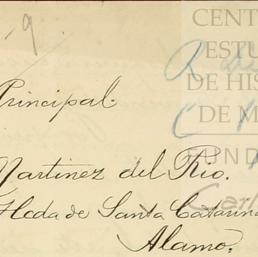 9
Principal.
Martinez del Rio.
Hcda de Santa Catarina
Alamo.
CENT
ESTU
DE HIS
DE M
FUND
Carl